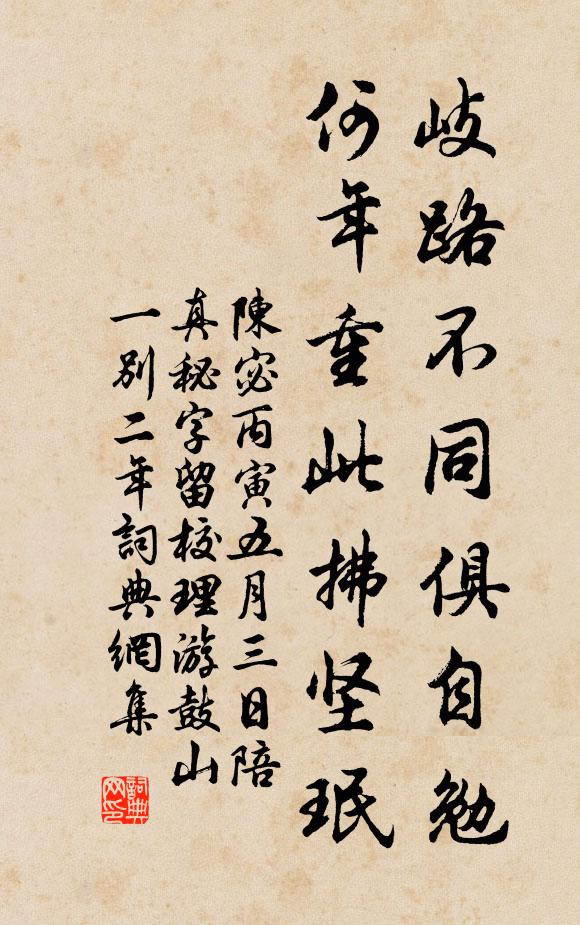 歧路不同俱自勉
何年重此拂坚珉
陳宓丙寅五月三日陪
真秘字留校理游鼓山
一別二年詞典網集
詞典网印